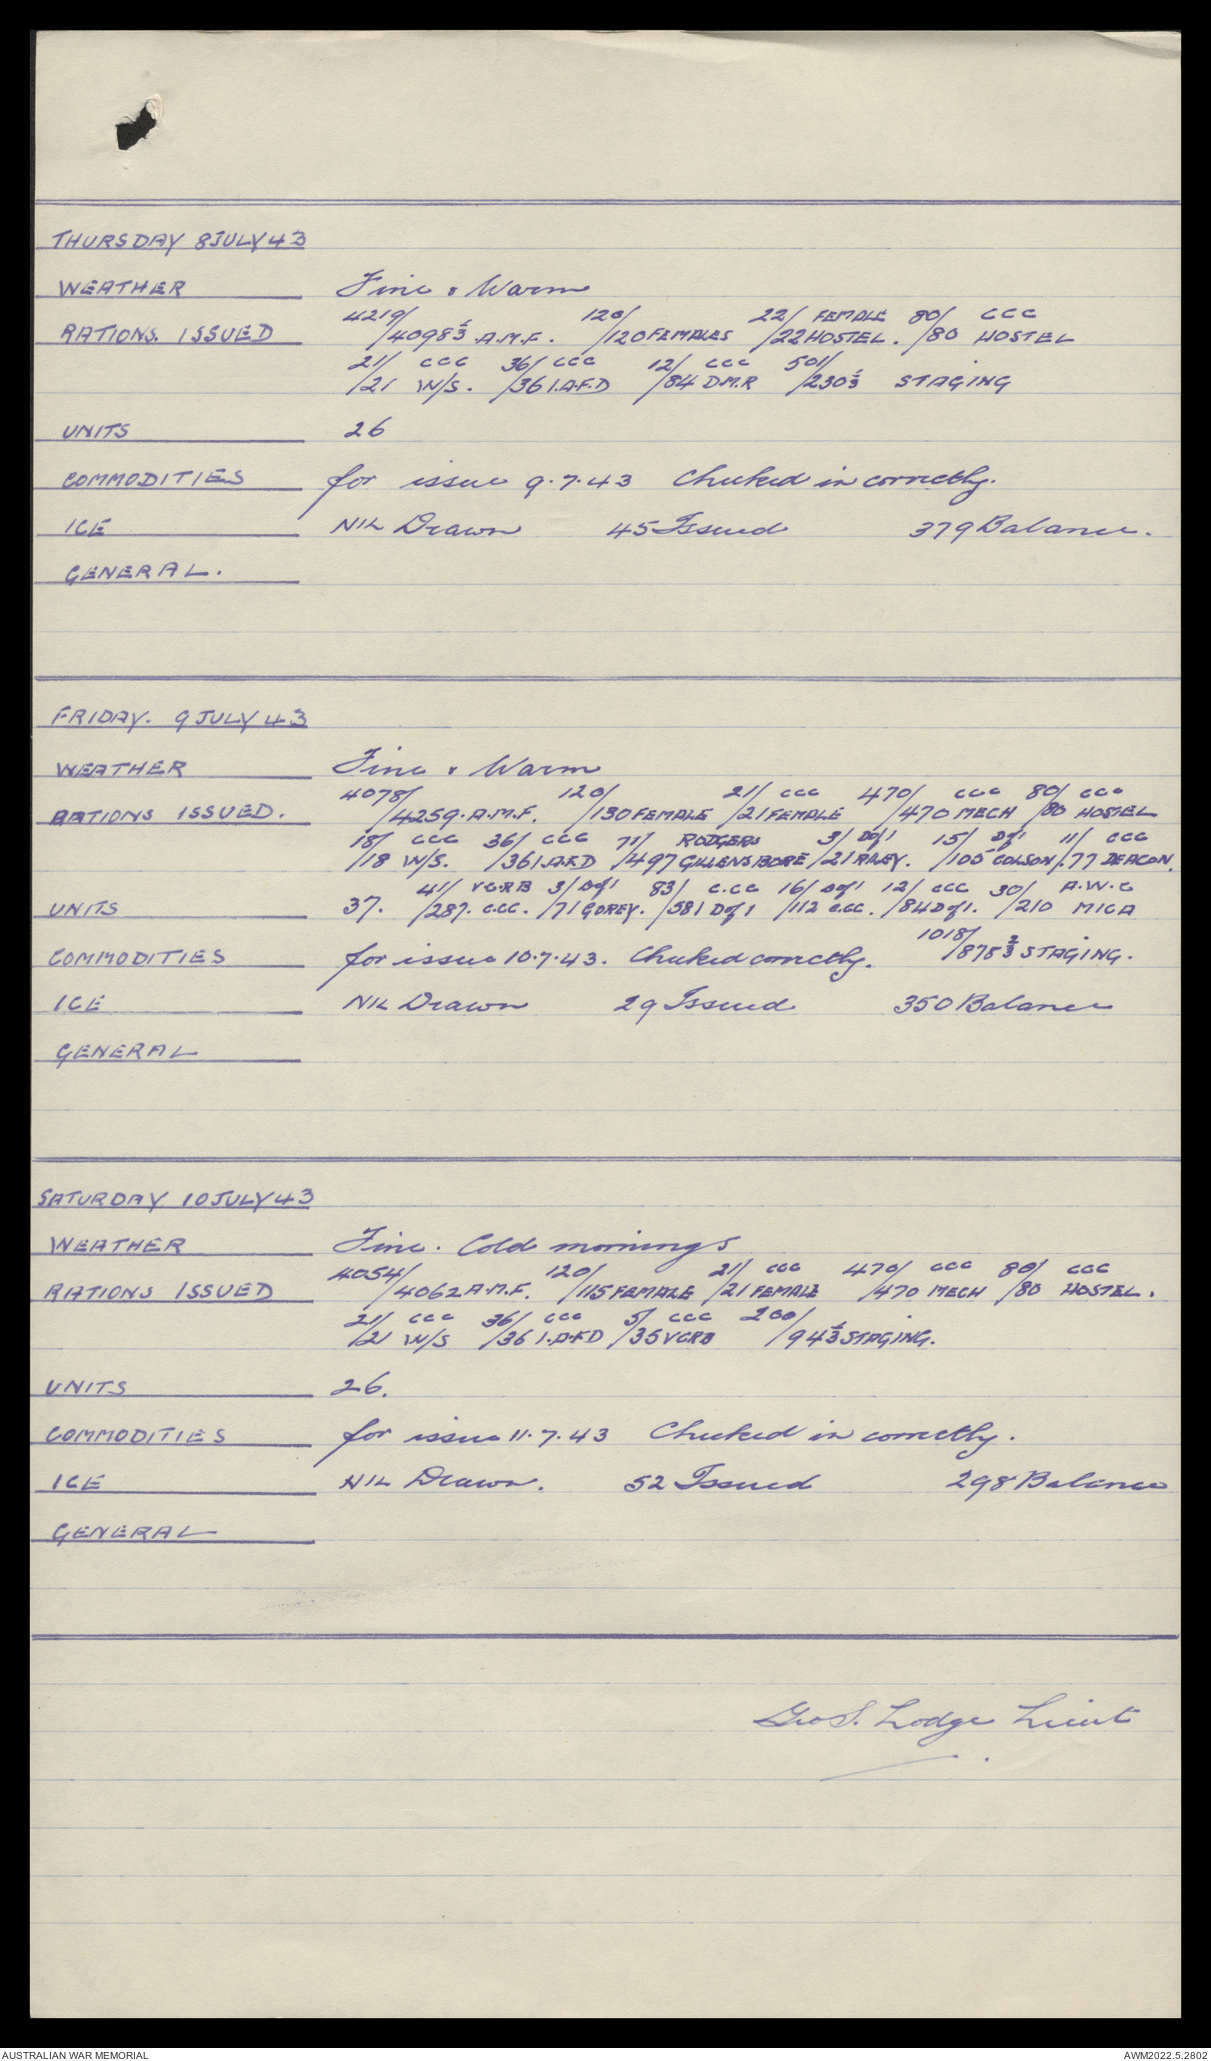 THURSDAY 8 JULY 43
WEATHER Fine & Warm
4219/ 120/ 22/ FEMALE 80/ CCC
RATIONS ISSUED /4098⅓ A.M.F. /120 FEMALES /22 HOSTEL. /80 HOSTEL
21/ CCC 36/ CCC 12/ CCC 501/
/21 W/S. /36 I.A.F.D /84 D.M.R /230⅓ STAGING
UNITS 26
COMMODITIES for issue 9.7.43 Checked in correctly.
ICE NIL Drawn 45 Issued 379 Balance.
GENERAL.
FRIDAY. 9 JULY 43
WEATHER Fine & Warm
4078/ 120/ 21/ CCC 470/ CCC 80/ CCC
RATIONS ISSUED. /4259. A.M.F. /130 FEMALE /21 FEMALE /470 MECH /80 HOSTEL
18/ CCC 36/ CCC 71/ RODGERS 3/ D of I 15/ D of I 11/ CCC
/18 W/S. /36 I.A.F.D /497 GILLENSBORE /21 RILEY. /105 COLSON /.77 DEACON.
41/ VCRB 3/ D of I 83/ C.CC 16/ D of I 12/ CCC 30/ A.W.C
UNITS 37. /287. C.CC. /71 GOREY. /581 D of I /112 C.CC. /84 D of I. /210 MICA
1018/
COMMODITIES for issue 10.7.43. Checked correctly. /878⅔ STAGING.
ICE NIL Drawn 29 Issued 350 Balance
GENERAL
SATURDAY 10 JULY 43
WEATHER Fine. Cold mornings
4054/ 120/ 21/ CCC 470/ CCC 80/ CCC
RATIONS ISSUED /4062 A.M.F. /115 FEMALE /21 FEMALE /470 MECH /80 HOSTEL.
21/ CCC 36/ CCC 5/ CCC 200/
/21 W/S /36 I.A.F.D /35 VCRB /94⅓ STAGING.
UNITS 26.
COMMODITIES for issue 11.7.43 Checked in correctly.
ICE NIL Drawn. 52 Issued 298 Balance
GENERAL
Geo S. Lodge Lieut
AUSTRALIAN WAR MEMORIAL AWM2022.5.2802